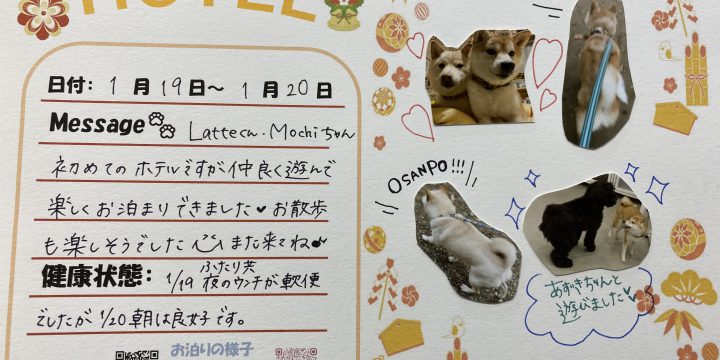 HOTEL
日付: 1月19日〜 1月20日
Message Latteくん・Mochiちゃん
初めてのホテルですが仲良く遊んで
楽しくお泊まりできました♥お散歩
も楽しそうでした♡また来てね♪
健康状態: 1/19 ふたり共夜のウンチが軟便
でしたが1/20朝は良好です。
お泊りの様子
OSANPO!!!
あずきちゃんと
遊びました♥